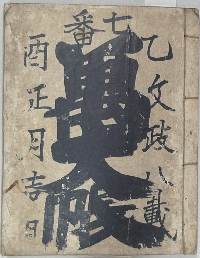 乙文政八載
七番
萬大帳
酉正月吉日